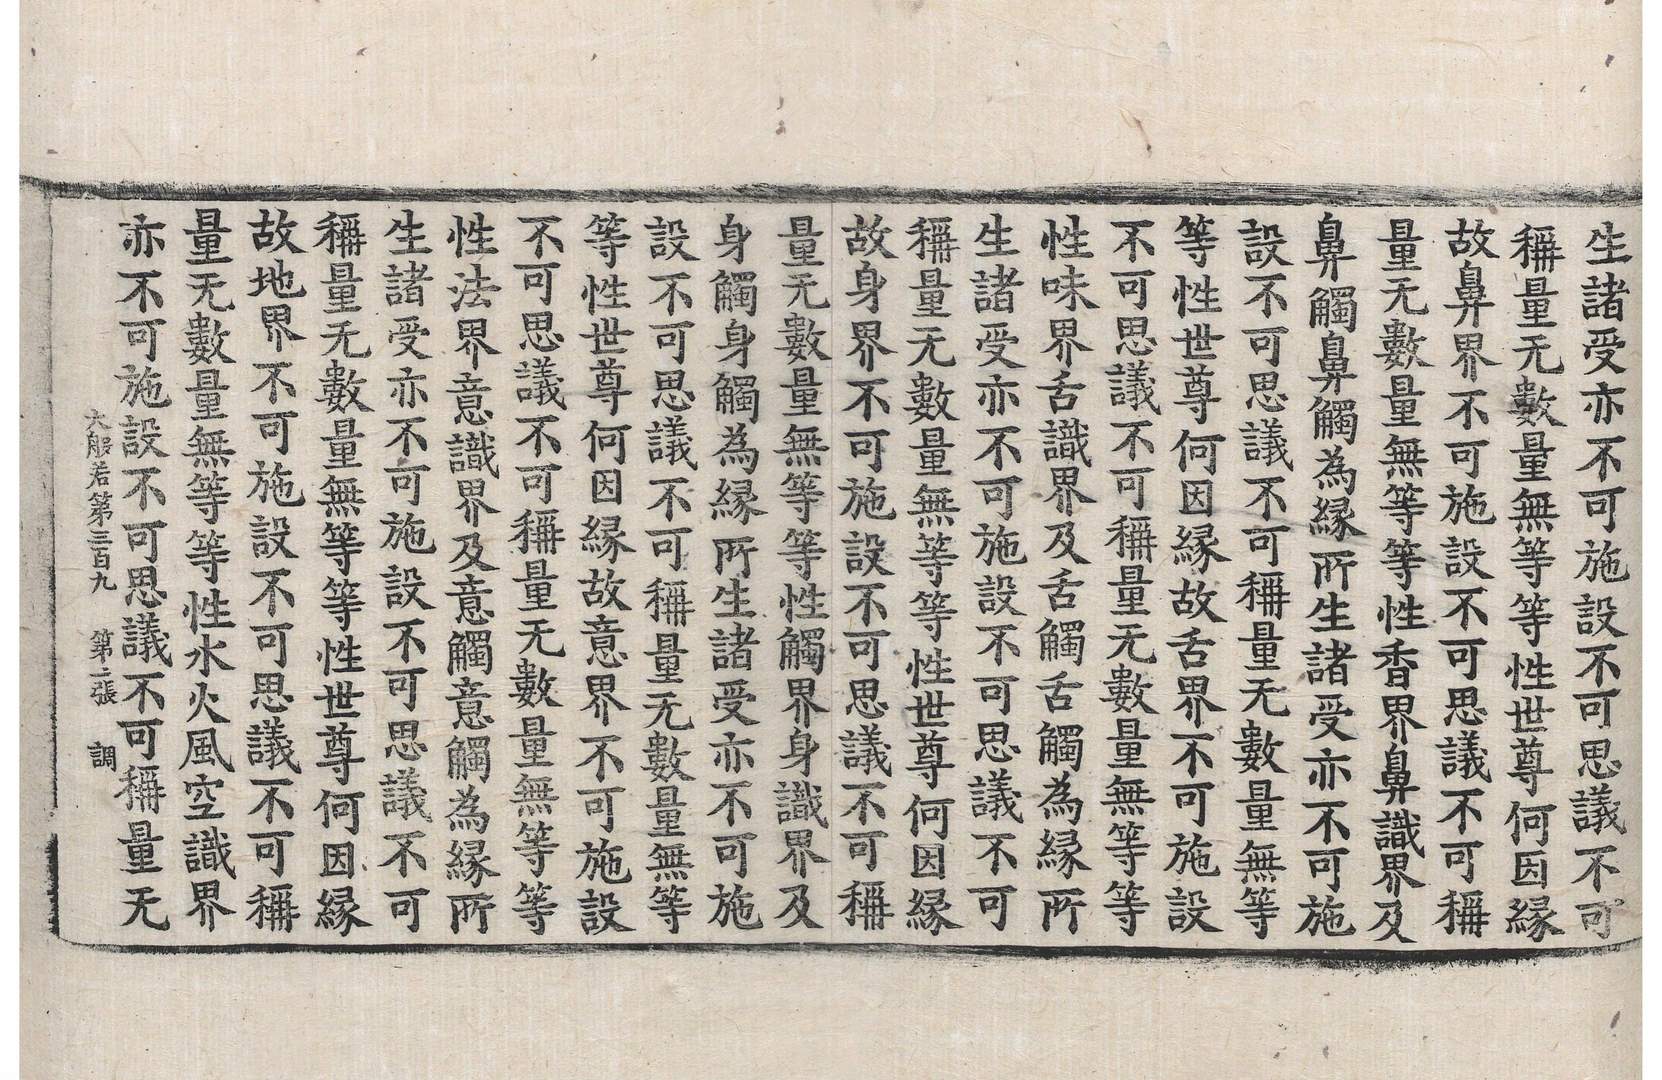 生諸受亦不可施設不可思議不可
稱量无數量無等等性世尊何因緣
故鼻界不可施設不可思議不可稱
量无數量無等等性香界鼻識界及
鼻觸鼻觸為緣所生諸受亦不可施
設不可思議不可稱量无數量無等
等性世尊何因緣故舌界不可施設
不可思議不可稱量无數量無等等
性味界舌識界及舌觸舌觸為緣所
生諸受亦不可施設不可思議不可
稱量无數量無等等性世尊何因緣
故身界不可施設不可思議不可稱
量无數量無等等性觸界身識界及
身觸身觸為緣所生諸受亦不可施
設不可思議不可稱量无數量無等
等性世尊何因緣故意界不可施設
不可思議不可稱量无數量無等等
性法界意識界及意觸意觸為緣所
生諸受亦不可施設不可思議不可
稱量无數量無等等性世尊何因緣
故地界不可施設不可思議不可稱
量无數量無等等性水火風空識界
亦不可施設不可思議不可稱量无
大般若第三百九 第二張 調